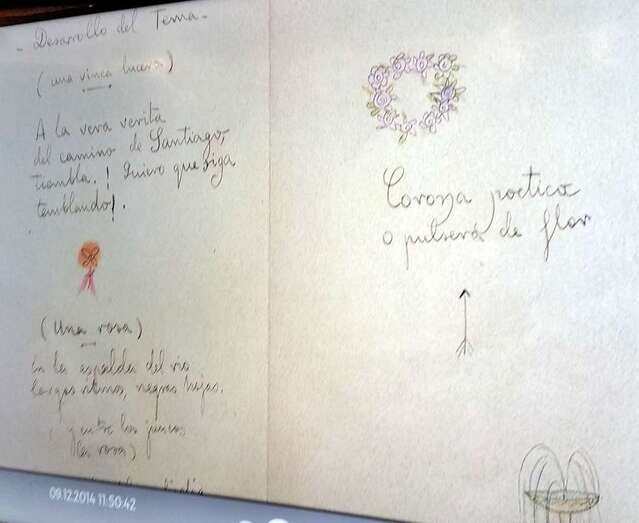 - Desarrollo del Tema -
(una vinca lucera)
A la vera verita
del camino de Santiago,
tiembla. ! Quiero que siga
temblando!.
(Una rosa)
En la espalda del río
largos ritmos, negras hojas.
y entre los juncos
la rosa)
Corona poetica
o pulsera de flor
09.12.2014 11:50:42